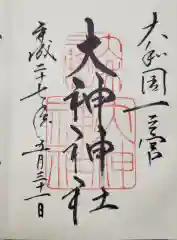 大和國一之宮
大神神社
平成二十七年五月三十一日